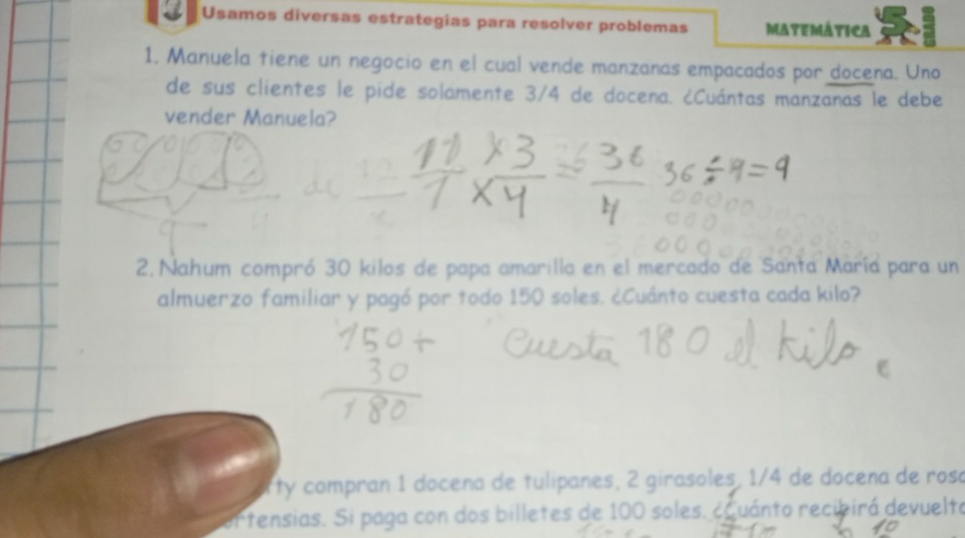 Usamos diversas estrategias para resolver problemas
MATEMÁTICA 5 GRADO
1. Manuela tiene un negocio en el cual vende manzanas empacados por docena. Uno
de sus clientes le pide solamente 3/4 de docena. ¿Cuántas manzanas le debe
vender Manuela?
12/1 x3/x4 = 36/4 36 ÷ 4 = 9
2. Nahum compró 30 kilos de papa amarilla en el mercado de Santa María para un
almuerzo familiar y pagó por todo 150 soles. ¿Cuánto cuesta cada kilo?
150+
30
180
Cuesta 180 el kilo.
ty compran 1 docena de tulipanes, 2 girasoles, 1/4 de docena de
rtensias. Si paga con dos billetes de 100 soles. ¿Cuánto recibirá